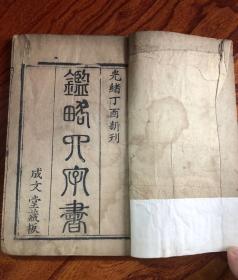 光緒丁酉新刊
鑑略四字書
成文堂藏板